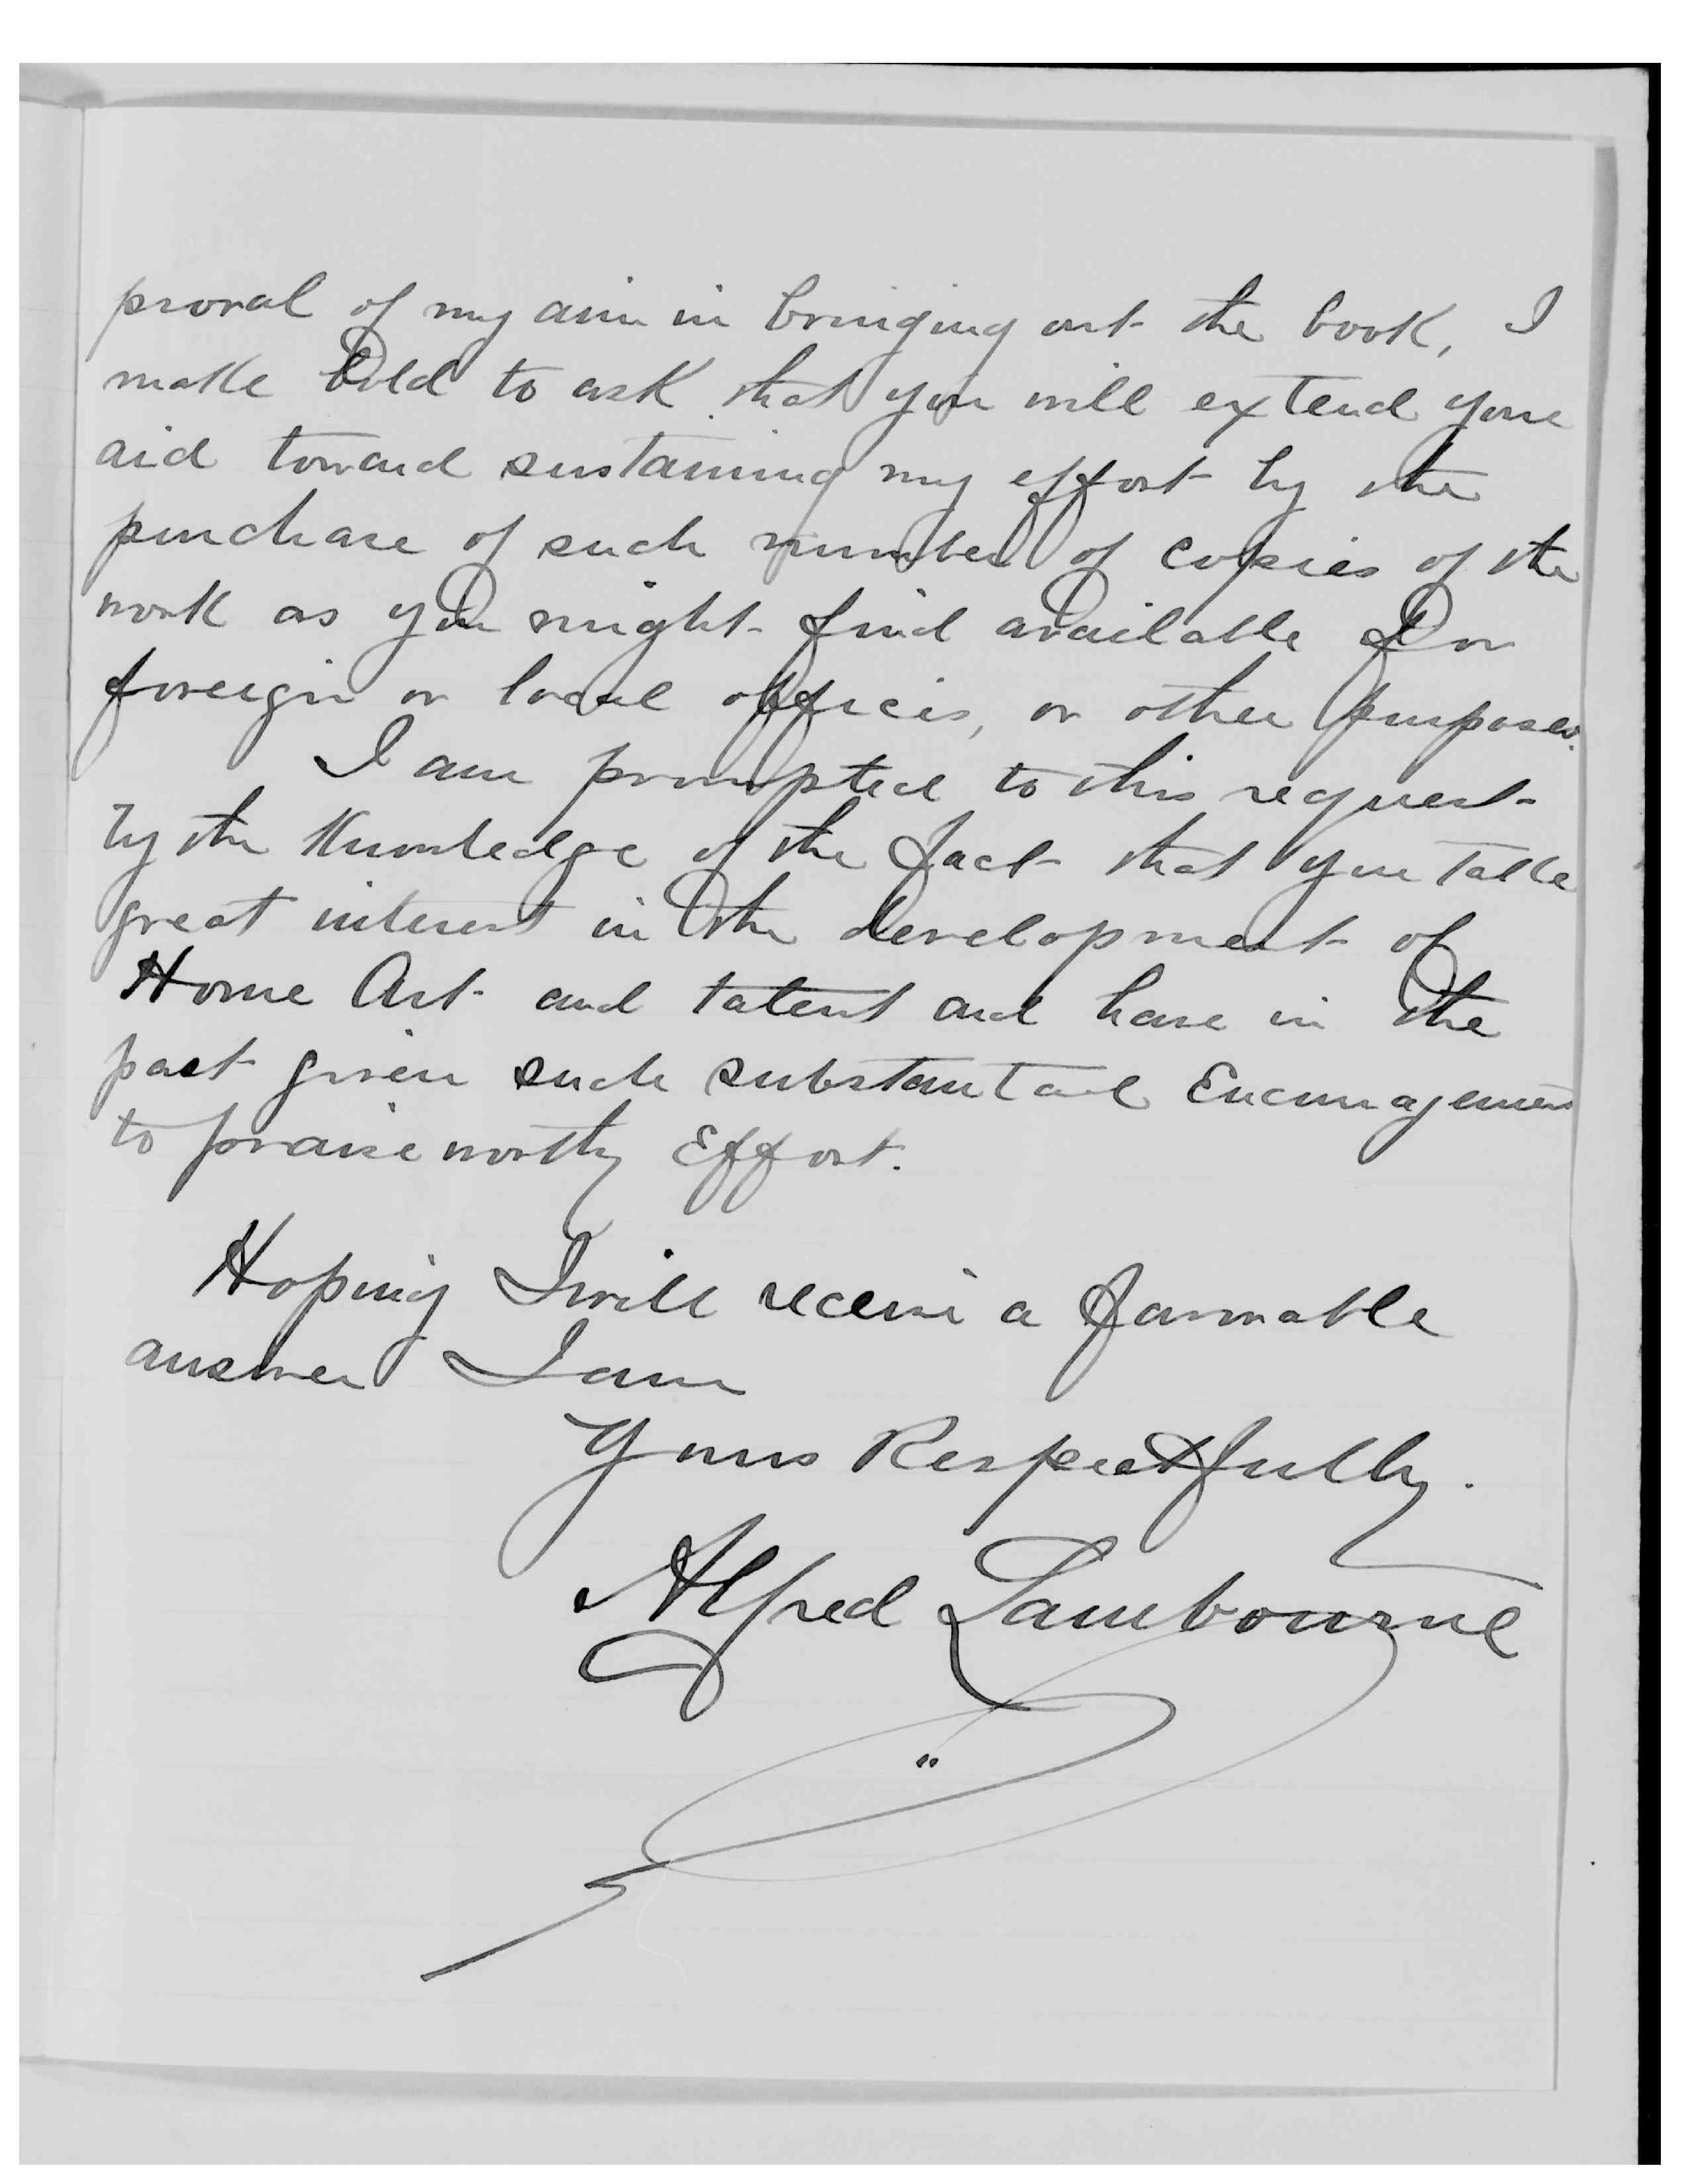 proval of my aim in bringing out the book, I
make bold to ask that you will extend your
aid toward sustaining my effort by the
purchase of such number of copies of the
work as you might find available for
foreign or local offices, or other purposes.
I am prompted to this request
by the Knowledge of the fact that you take
great interest in the development of
Home Art and talent and have in the
past given such substantial Encouragement
to praiseworthy Effort.
Hoping I will receive a favorable
answer I am
Yours Respectfully.
Alfred Lambourne